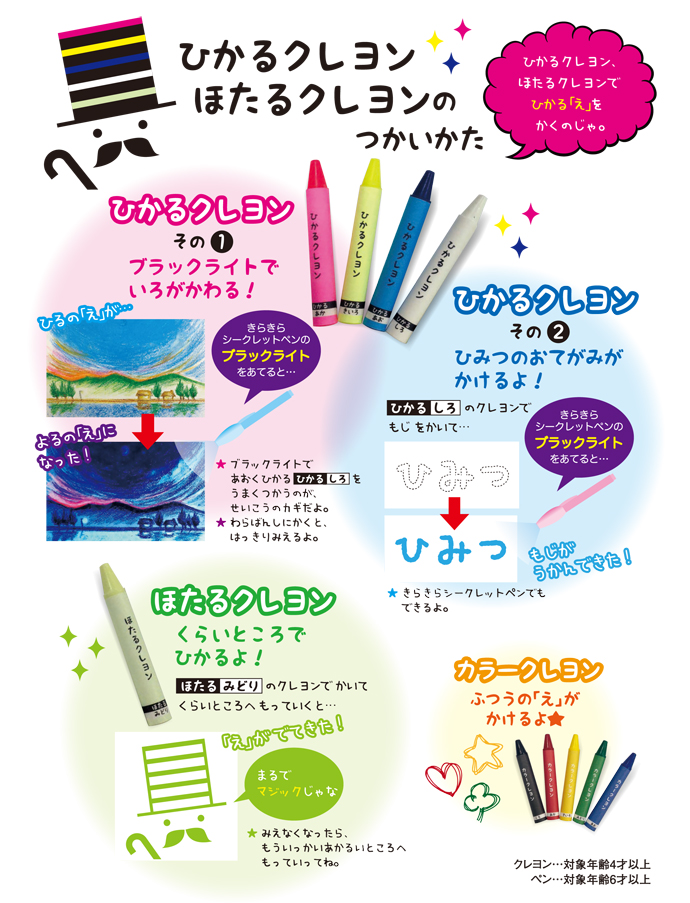 ひかるクレヨン
ほたるクレヨンの
つかいかた
ひかるクレヨン、
ほたるクレヨンで
ひかる「え」を
かくのじゃ。
ひかるクレヨン
その1
ブラックライトで
いろがかわる！
ひかるクレヨン
ひかる
あか
ひかるクレヨン
ひかる
きいろ
ひかるクレヨン
ひかる
あお
ひかるクレヨン
ひかる
しろ
ひるの「え」が…
きらきら
シークレットペンの
ブラックライト
をあてると…
よるの「え」に
なった！
★ ブラックライトで
あおくひかる ひかる しろ を
うまくつかうのが、
せいこうのカギだよ。
★ わらばんしにかくと、
はっきりみえるよ。
ひかるクレヨン
その2
ひみつのおてがみが
かけるよ！
ひかる しろ のクレヨンで
もじをかいて…
きらきら
シークレットペンの
ブラックライト
をあてると…
ひみつ
ひみつ
もじが
うかんできた！
★ きらきらシークレットペンでも
できるよ。
ほたるクレヨン
ほたる
みどり
ほたるクレヨン
くらいところで
ひかるよ！
ほたる みどり のクレヨンでかいて
くらいところへもっていくと…
「え」がでてきた！
まるで
マジックじゃな
★ みえなくなったら、
もういっかいあかるいところへ
もっていってね。
カラークレヨン
ふつうの「え」が
かけるよ★
カラークレヨン
カラークレヨン
カラークレヨン
カラークレヨン
カラークレヨン
クレヨン…対象年齢4才以上
ペン…対象年齢6才以上